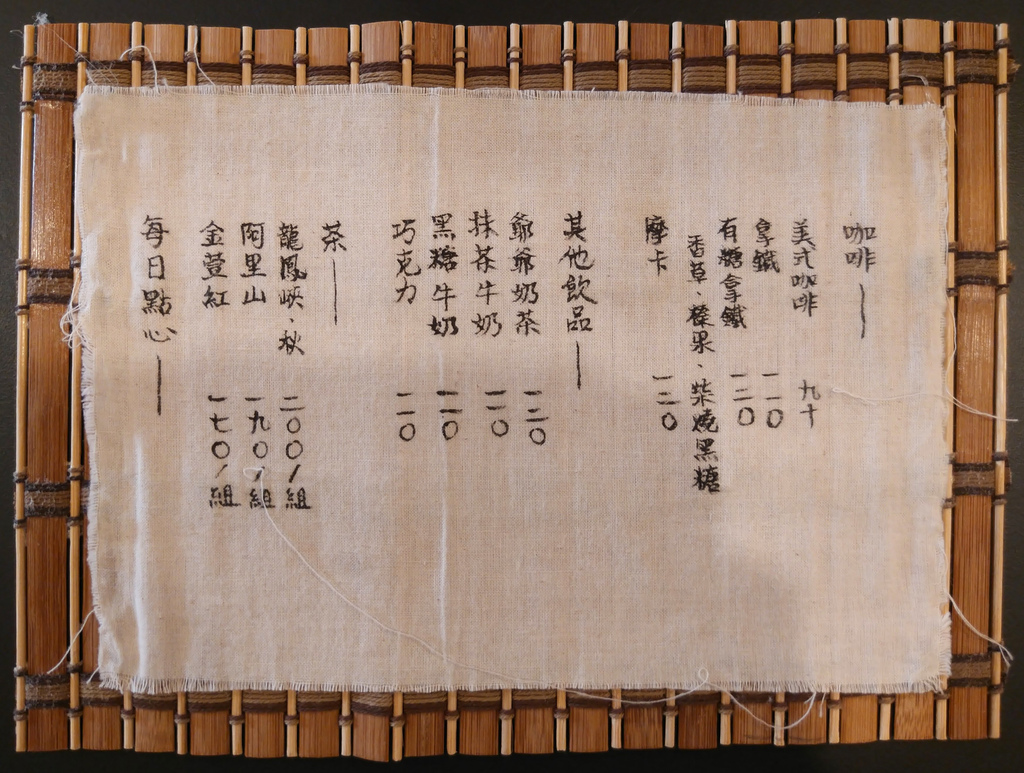 咖啡——
美式咖啡 九十
拿鐵 一一〇
有糖拿鐵 一二〇
香草、榛果、柴燒黑糖
摩卡 一二〇
其他飲品——
爺爺奶茶 一二〇
抹茶牛奶 一一〇
黑糖牛奶 一一〇
巧克力 一一〇
茶——
龍鳳峽、秋 二〇〇/組
阿里山 一九〇/組
金萱紅 一七〇/組
每日點心——